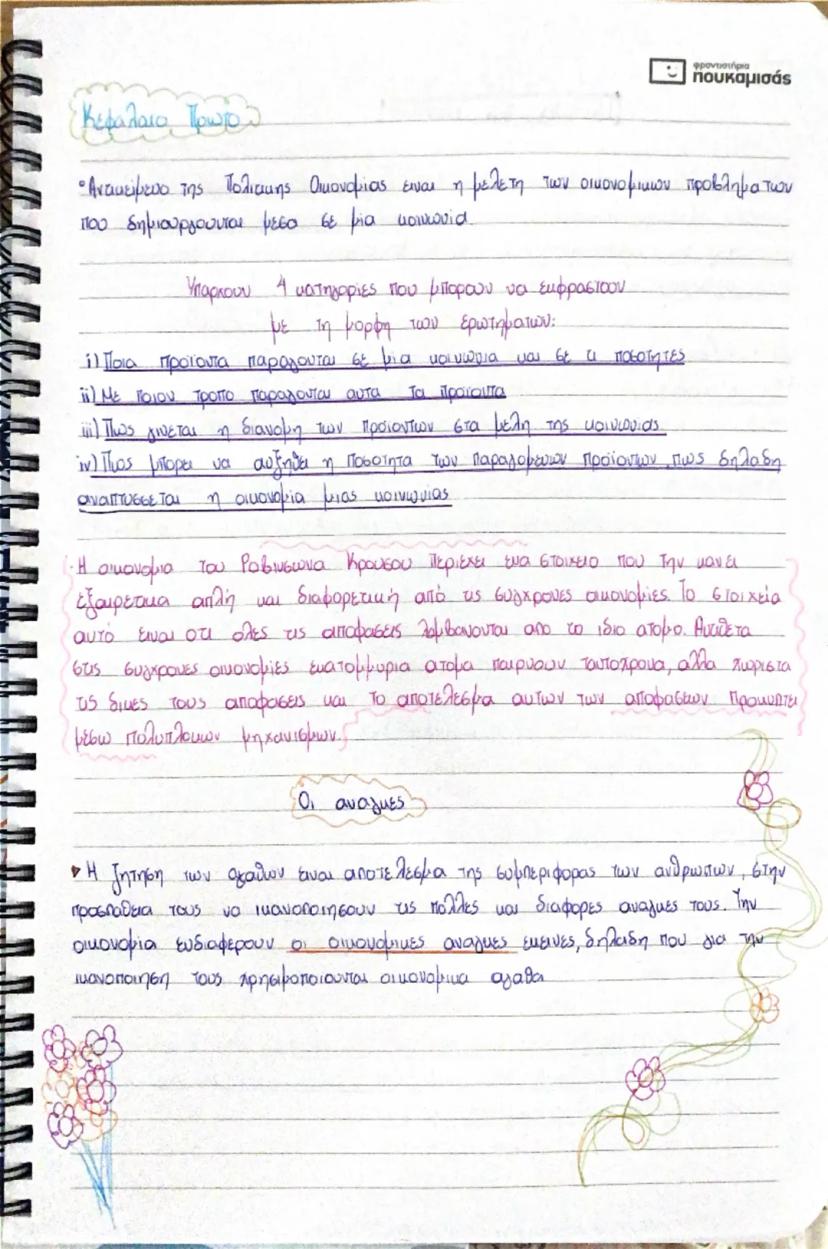 φροντιστήρια
πουκαμισάς
Κεφαλαιο Πρωτο
°Αντικειμενο της Πολιτικης Οικονομιας ειναι η μελετη των οικονομικων προβληματων
που δημιουργουνται μεσα σε μια κοινωνια.
Υπαρκουν 4 κατηγοριες που μπορουν να εκφραστουν
με τη μορφη των ερωτηματων:
i) Ποια προϊοντα παραγονται σε μια κοινωνια και σε τι ποσοτητες
ii) Με ποιον τροπο παραγονται αυτα τα προϊοντα
iii) Πως γινεται η διανομη των προϊοντων στα μελη της κοινωνιας
iv) Πως μπορει να αυξηθει η ποσοτητα των παραγομενων προϊοντων, πως δηλαδη
αναπτυσσεται η οικονομια μιας κοινωνιας
·Η οικονομια του Ροβινσωνα Κρουσου περιεχει ενα στοιχειο που την κανει
εξαιρετικα απλή και διαφορετική από τις συγχρονες οικονομιες. Το στοιχεία
αυτό ειναι οτι ολες τις αποφασεις λαμβανονται απο το ιδιο ατομο. Αντιθετα
στις συγχρονες οικονομιες εκατομμυρια ατομα παιρνουν ταυτοχρονα, αλλα χωριστα
τις δικες τους αποφασεις και το αποτέλεσμα αυτων των αποφασεων προκυπτει
μεσω πολυπλοκων μηχανισμων.
Οι αναγκες
Η ζητηση των αγαθων ειναι αποτελεσμα της συμπεριφορας των ανθρωπων, στην
προσπαθεια τους να ικανοποιησουν τις πολλες και διαφορες αναγκες τους. Την
οικονομια ενδιαφερουν οι οικονομικες αναγκες εκεινες, δηλαδη που για την
ικανοποιηση τους χρησιμοποιουνται οικονομικα αγαθα